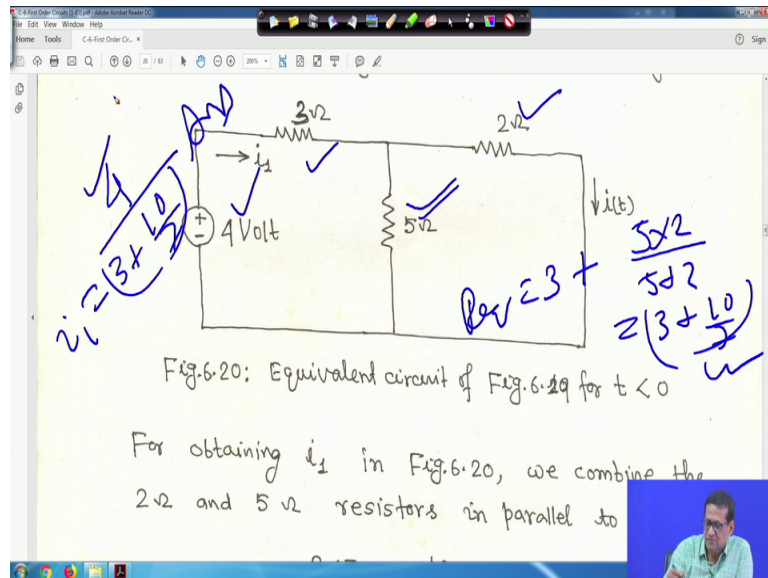 C-6-First Order Circuits [1-83].pdf - Adobe Acrobat Reader DC
File Edit View Window Help
Home Tools C-6-First Order Circ... × Sign
26 / 83 200%
3Ω
2Ω
→ i₁
4 Volt
5Ω
i(t)
i₁ = 4 / (3 + 10/7) Amp
Req = 3 + 5×2 / 5+2
= (3 + 10/7) Ω
Fig.6.20: Equivalent circuit of Fig.6.19 for t < 0
For obtaining i₁ in Fig.6.20, we combine the
2Ω and 5Ω resistors in parallel to